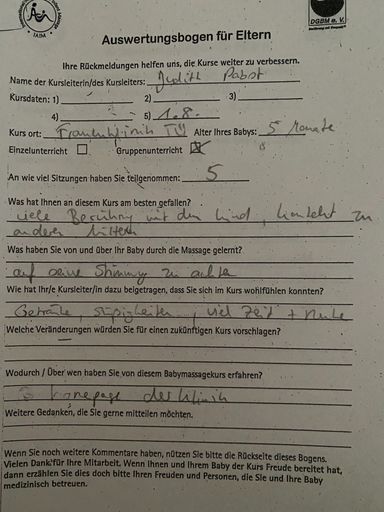 IAIM
DGBM e. V.
Auswertungsbogen für Eltern
Ihre Rückmeldungen helfen uns, die Kurse weiter zu verbessern.
Name der Kursleiterin/des Kursleiters: Judith Pabst
Kursdaten: 1) 2) 3)
4) 5) 1.8.
Kurs ort: Frauenklinik TÜ Alter Ihres Babys: 5 Monate
Einzelunterricht Gruppenunterricht
An wie viel Sitzungen haben Sie teilgenommen: 5
Was hat Ihnen an diesem Kurs am besten gefallen?
viele Berührung mit dem Kind, Kontakt zu
anderen Müttern
Was haben Sie von und über Ihr Baby durch die Massage gelernt?
auf seine Stimmung zu achten
Wie hat Ihr/e Kursleiter/in dazu beigetragen, dass Sie sich im Kurs wohlfühlen konnten?
Getränke, Süßigkeiten, viel Zeit + Ruhe
Welche Veränderungen würden Sie für einen zukünftigen Kurs vorschlagen?
—
Wodurch / Über wen haben Sie von diesem Babymassagekurs erfahren?
Homepage der Klinik
Weitere Gedanken, die Sie gerne mitteilen möchten.
Wenn Sie noch weitere Kommentare haben, nützen Sie bitte die Rückseite dieses Bogens.
Vielen Dank für Ihre Mitarbeit. Wenn Ihnen und Ihrem Baby der Kurs Freude bereitet hat,
dann erzählen Sie dies doch bitte Ihren Freunden und Personen, die Sie und Ihre Baby
medizinisch betreuen.